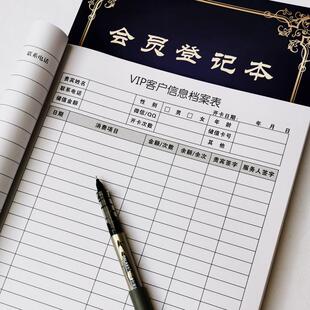 会员登记本
联系电话
VIP客户信息档案表
开卡日期 年 月 日
贵宾姓名 性别 □男 □女 年龄
联系电话 微信/QQ 储值卡号
储值金额 开卡次数 其他
日期 消费项目 金额/次数 余额/余次 贵宾签字 服务人签字